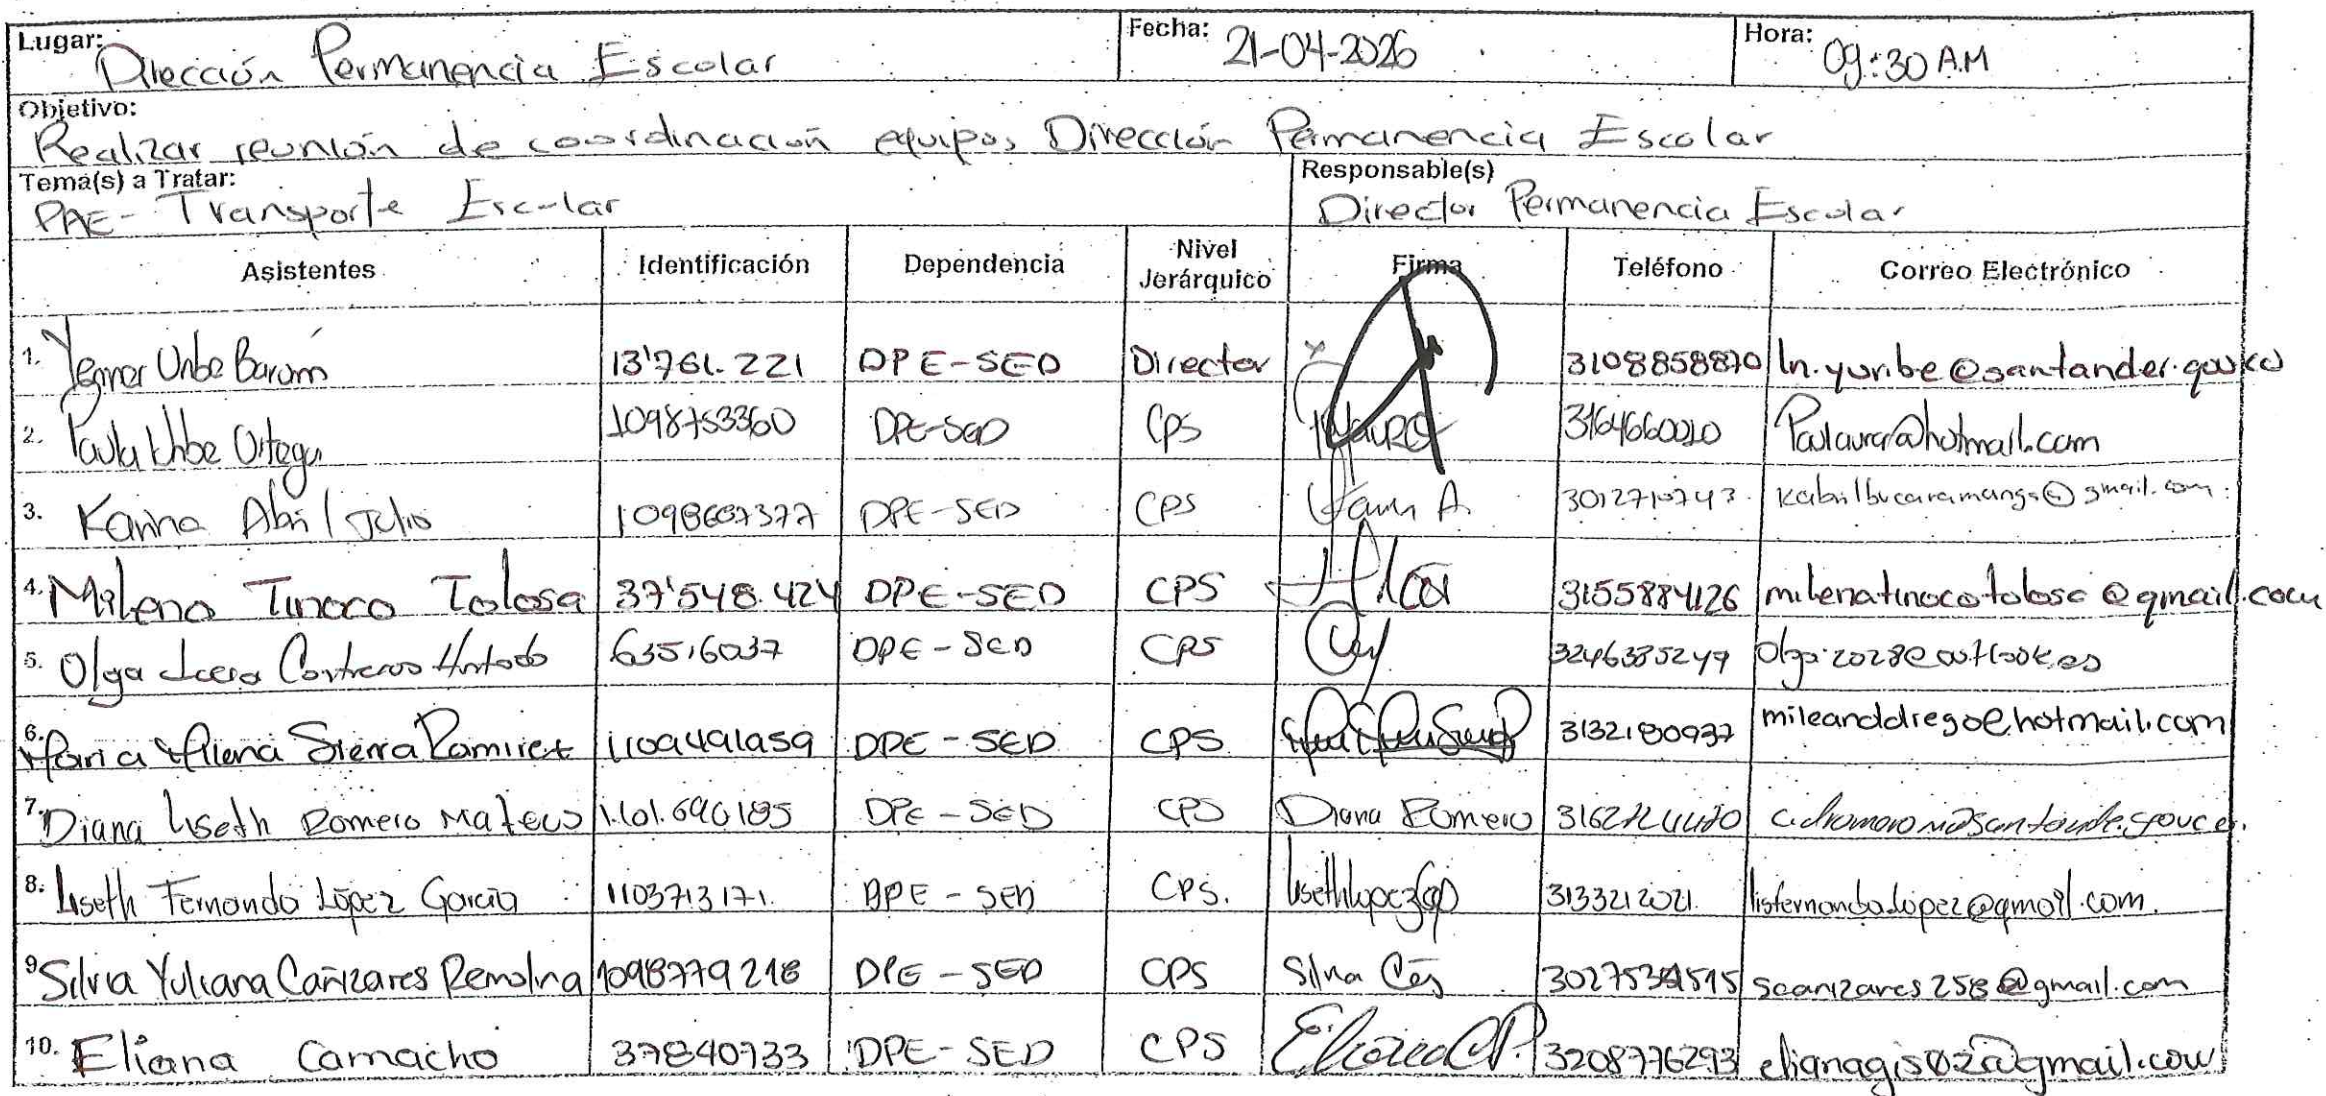 Lugar: Dirección Permanencia Escolar Fecha: 21-04-2026 Hora: 09:30 AM
Objetivo:
Realizar reunión de coordinación equipos Dirección Permanencia Escolar
Tema(s) a Tratar: Responsable(s)
PAE - Transporte Escolar Director Permanencia Escolar
Asistentes Identificación Dependencia Nivel Jerárquico Firma Teléfono Correo Electrónico
1. Uribe 13'761.221 DPE-SED Director 3108858870 ln.yuribe@santander.gov.co
2. Paula Uribe Ortega 1098753360 DPE-SED CPS 3164660020
3. Karina Abril Julio DPE-SED CPS kabrilbucaramanga@gmail.com
4. Milena Tinoco Tolosa 37'548.424 DPE-SED CPS 3155884126 milenatinocotolosa@gmail.com
5. Olga Contreras Hurtado 63516037 DPE-SED CPS
6. Maria Milena Sierra Ramirez DPE-SED CPS 3132180937 mileanddiego@hotmail.com
7. Diana Liseth Romero Mateus DPE-SED CPS Diana Romero
8. Liseth Fernanda López García 1103713171 DPE-SED CPS. 3133212021 lisfernanda.lopez@gmail.com
9. Silvia Yuliana Cañizares Remolina 1098779218 DPE-SED CPS scanizares258@gmail.com
10. Eliana Camacho 37840733 DPE-SED CPS 3208776293 elianagis02@gmail.com